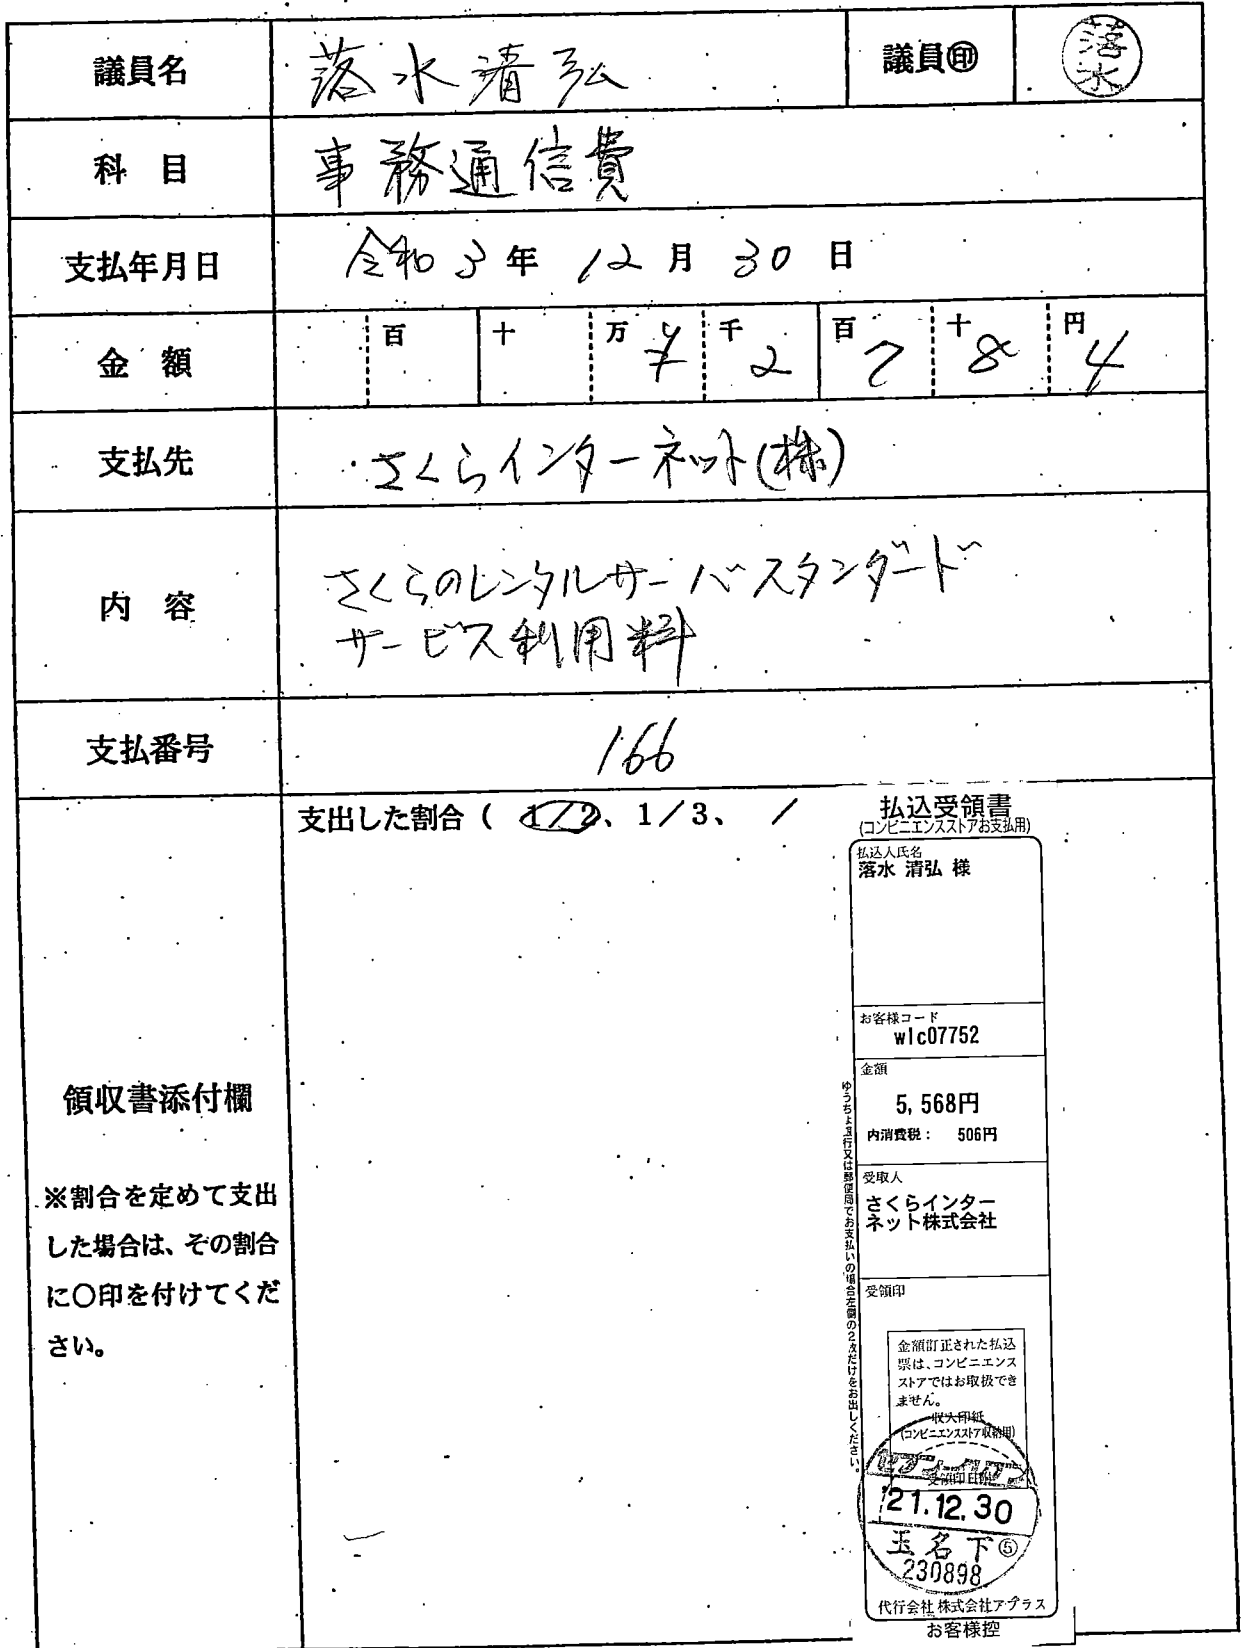 議員名 落水清弘 議員㊞ 落水
科 目 事務通信費
支払年月日 令和3年12月30日
金 額 百 十 万 ¥ 千 2 百 7 十 8 円 4
支払先 さくらインターネット(株)
内 容 さくらのレンタルサーバスタンダード
サービス利用料
支払番号 166
支出した割合 ( 1/2、1/3、 /
領収書添付欄
※割合を定めて支出
した場合は、その割合
に〇印を付けてくだ
さい。
払込受領書
(コンビニエンスストアお支払用)
払込人氏名
落水 清弘 様
お客様コード
wlc07752
金額
5,568円
内消費税: 506円
受取人
さくらインター
ネット株式会社
受領印
金額訂正された払込
票は、コンビニエンス
ストアではお取扱でき
ません。
収入印紙
(コンビニエンスストア収納用)
セブン-イレブン
受領印日附
'21.12.30
玉名下⑤
230898
代行会社 株式会社アプラス
お客様控
ゆうちょ銀行又は郵便局でお支払いの場合左側の2枚だけをお出しください。